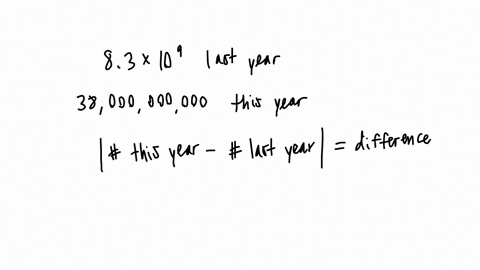 8.3 × 10⁹ last year
38,000,000,000 this year
|# this year - # last year| = difference